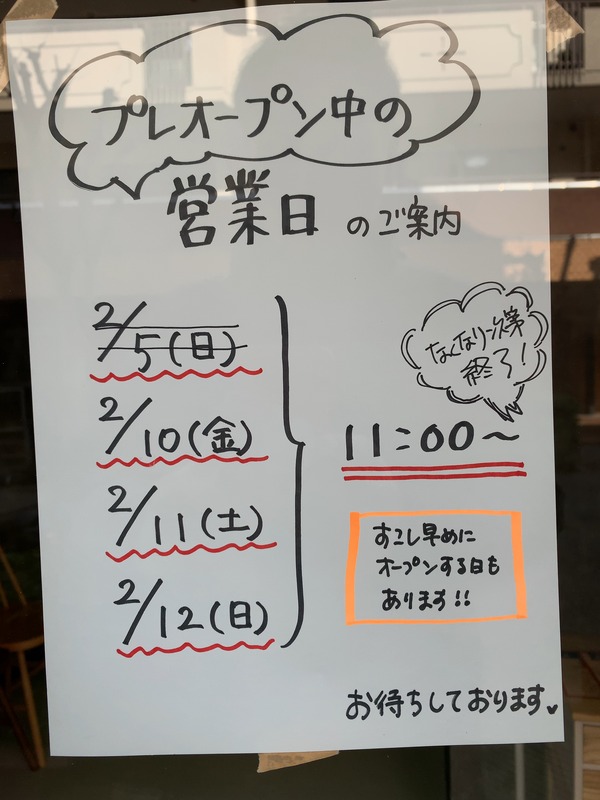 プレオープン中の
営業日のご案内
2/5(日)
2/10(金)
2/11(土)
2/12(日)
なくなり次第
終了!
11:00～
すこし早めに
オープンする日も
あります!!
お待ちしております